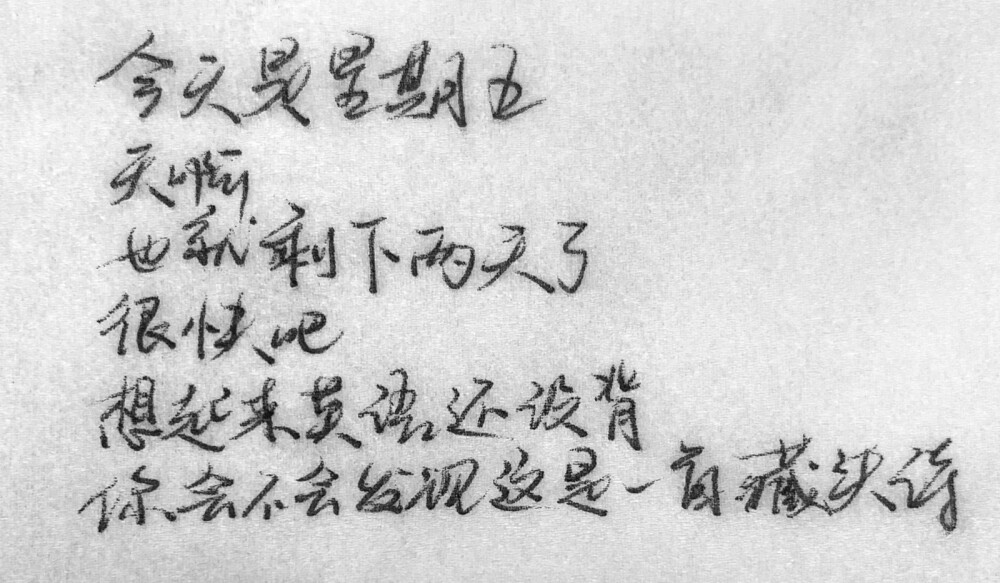 今天是星期五
天啊
也就剩下两天了
很快吧
想起来英语还没背
你会不会发现这是一首藏头诗